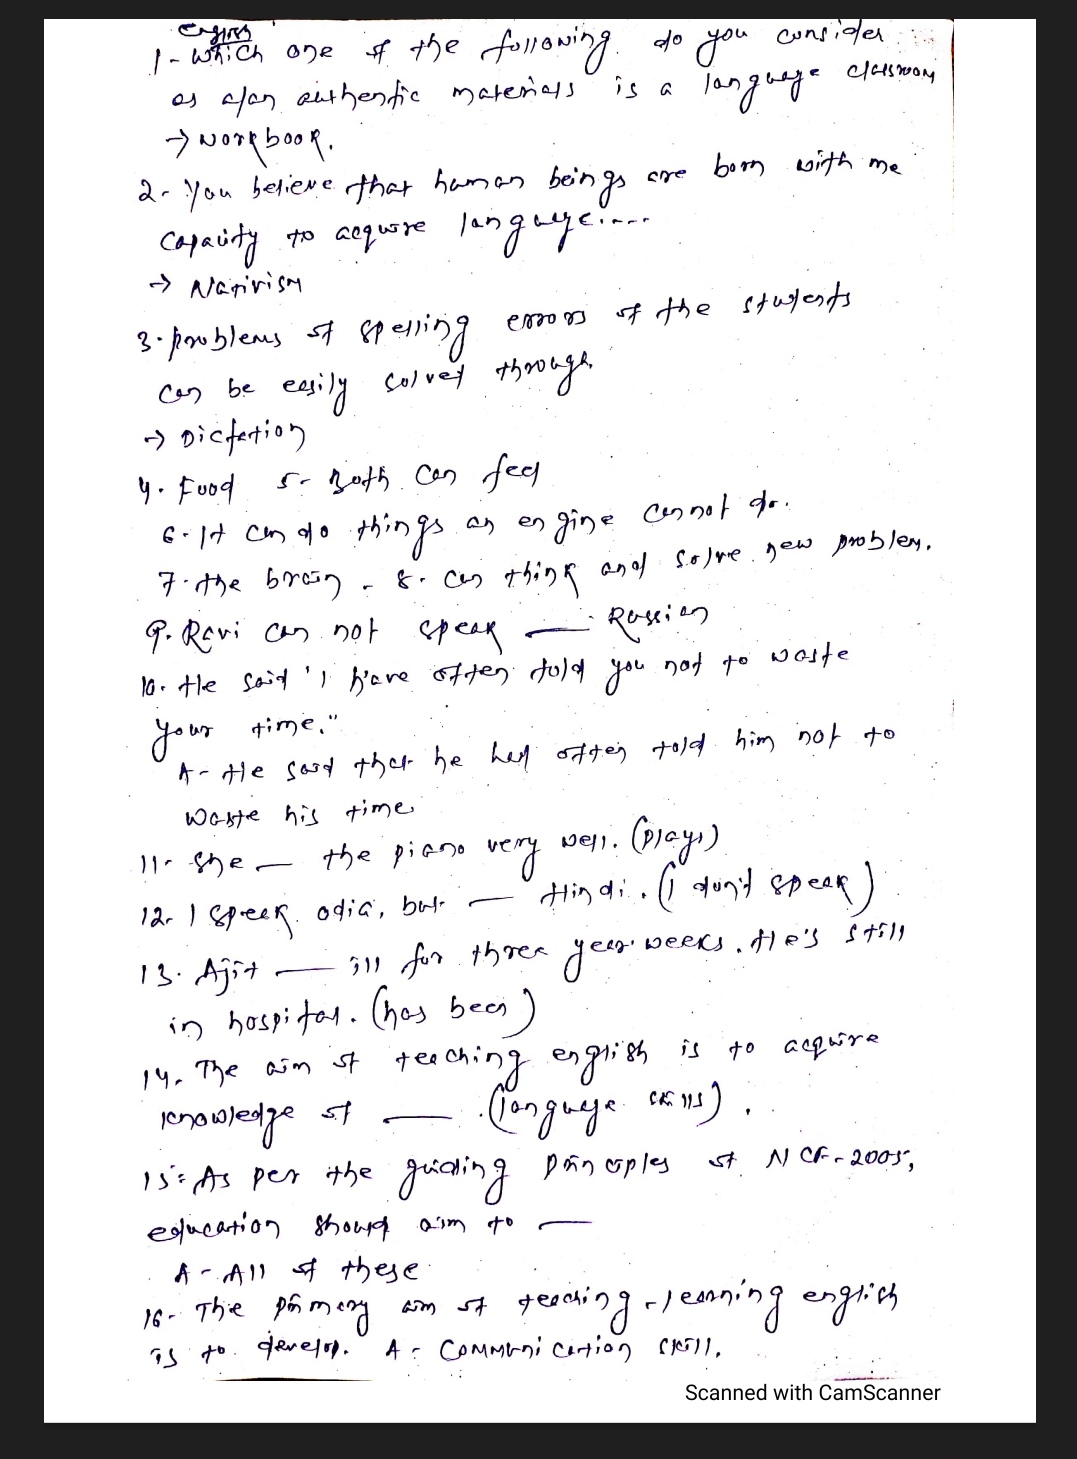 English
1- Which one of the following do you consider
as a/an authentic materials is a language classroom
→ Workbook.
2- You believe that human beings are born with me
capacity to acquire language.....
→ Nativism
3. problems of spelling errors of the students
can be easily solved through.
→ Dictation
4. Food 5- Both can feel
6- It can do things an engine cannot do.
7. the brain - 8. can think and solve new problem.
9. Ravi can not speak — Russian
10. He said 'I have often told you not to waste
your time."
A- He said that he had often told him not to
waste his time.
11- She — the piano very well. (plays)
12. I speak odia, but — Hindi. (I don't speak)
13. Ajit — ill for three year weeks. He's still
in hospital. (has been)
14. The aim of teaching english is to acquire
knowledge of — . (language skills).
15: As per the guiding principles of NCF-2005,
education should aim to —
A- All of these
16- The primary aim of teaching-learning english
is to develop. A- Communication skill.
Scanned with CamScanner